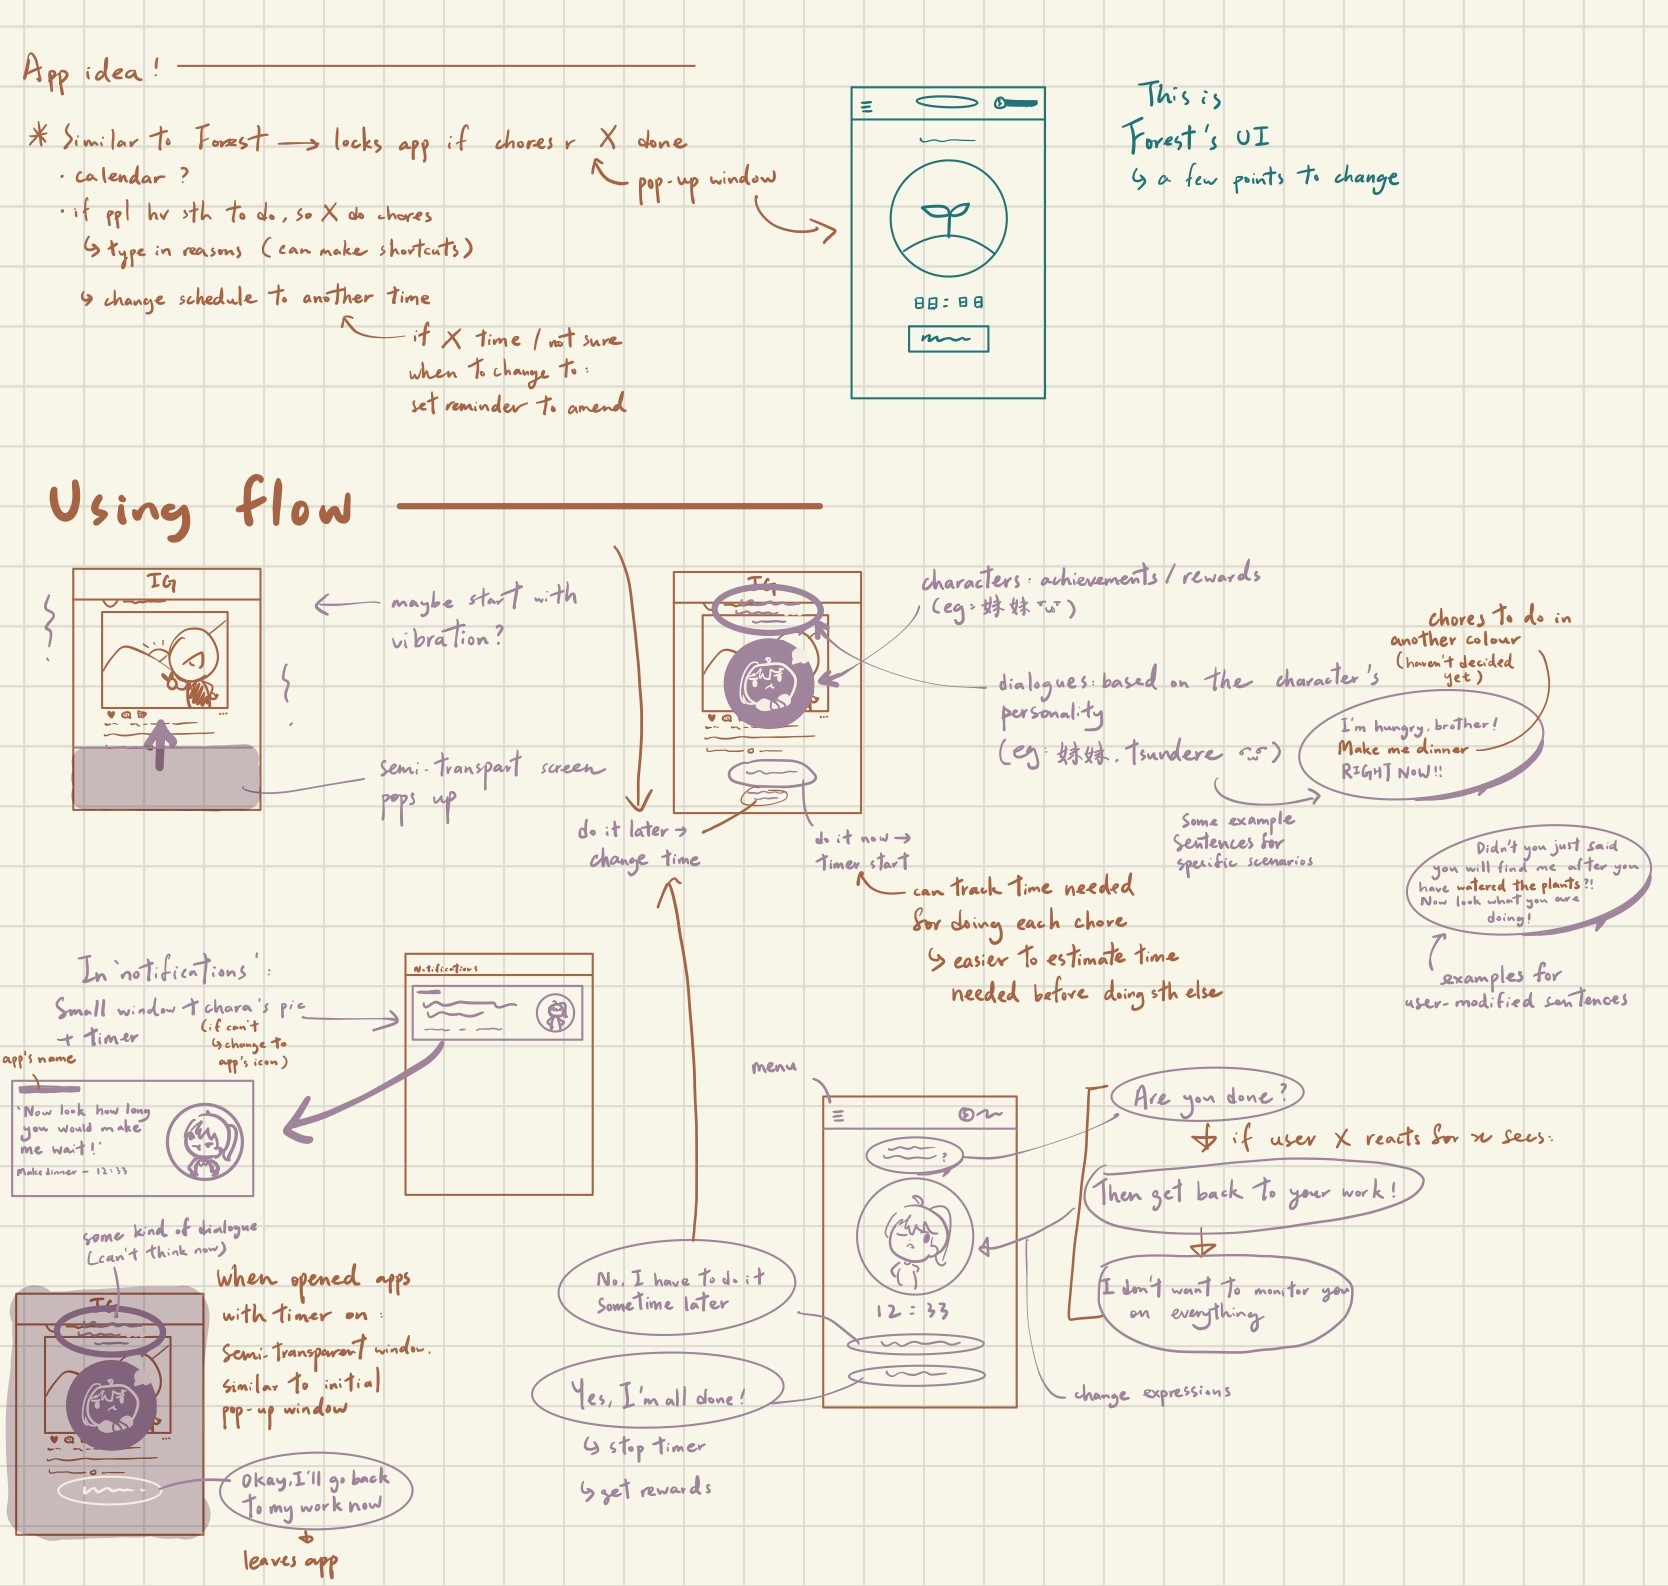 App idea!
* Similar to Forest → locks app if chores r X done
· calendar ?
pop-up window
· if ppl hv sth to do, so X do chores
↳ type in reasons (can make shortcuts)
↳ change schedule to another time
if X time / not sure
when to change to :
set reminder to amend
88:88
This is
Forest's UI
↳ a few points to change
Using flow
IG
maybe start with
vibration?
semi-transpart screen
pops up
IG
characters: achievements / rewards
(eg: 妹妹)
dialogues: based on the character's
personality
(eg: 妹妹, tsundere)
chores to do in
another colour
(haven't decided
yet)
I'm hungry, brother!
Make me dinner
RIGHT NOW!!
Some example
sentences for
specific scenarios
Didn't you just said
you will find me after you
have watered the plants?!
Now look what you are
doing!
examples for
user-modified sentences
do it later →
change time
do it now →
timer start
can track time needed
for doing each chore
↳ easier to estimate time
needed before doing sth else
In 'notifications':
Small window + chara's pic
+ timer
(if can't
↳ change to
app's icon)
app's name
Notifications
'Now look how long
you would make
me wait!'
Make dinner - 12:33
some kind of dialogue
(can't think now)
IG
When opened apps
with timer on :
semi-transparent window.
similar to initial
pop-up window
Okay, I'll go back
to my work now
leaves app
menu
?
12 : 33
Are you done?
if user X reacts for n secs:
Then get back to your work!
I don't want to monitor you
on everything
change expressions
No, I have to do it
sometime later
Yes, I'm all done!
↳ stop timer
↳ get rewards